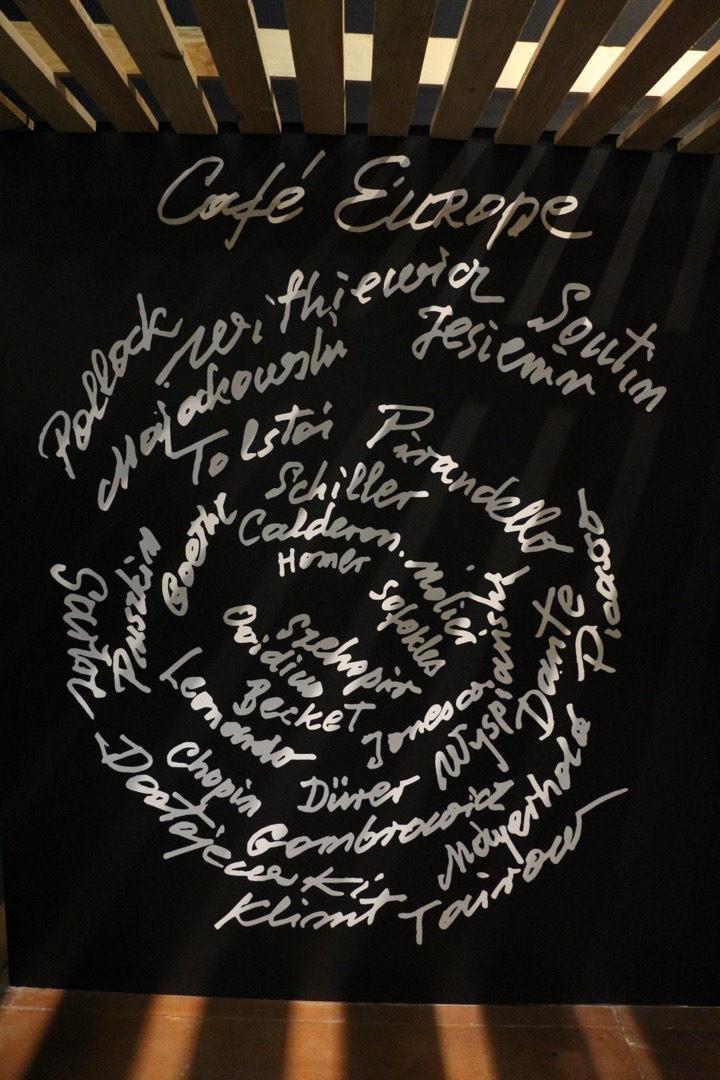 Café Europe
Pollock
Withiewicz
Soutin
Majakowski
Jesienin
Tolstoi
Pirandello
Picasso
Schiller
Goethe
Calderon.
Molier
Homer
Sofokles
Puszkin
Sartre
Szekspir
Owidiusz
Becket
Jonesco
Wyspiański
Dante
Leonardo
Chopin
Dürer
Gombrowicz
Mayerhold
Dostojewski
Klimt
Tairow